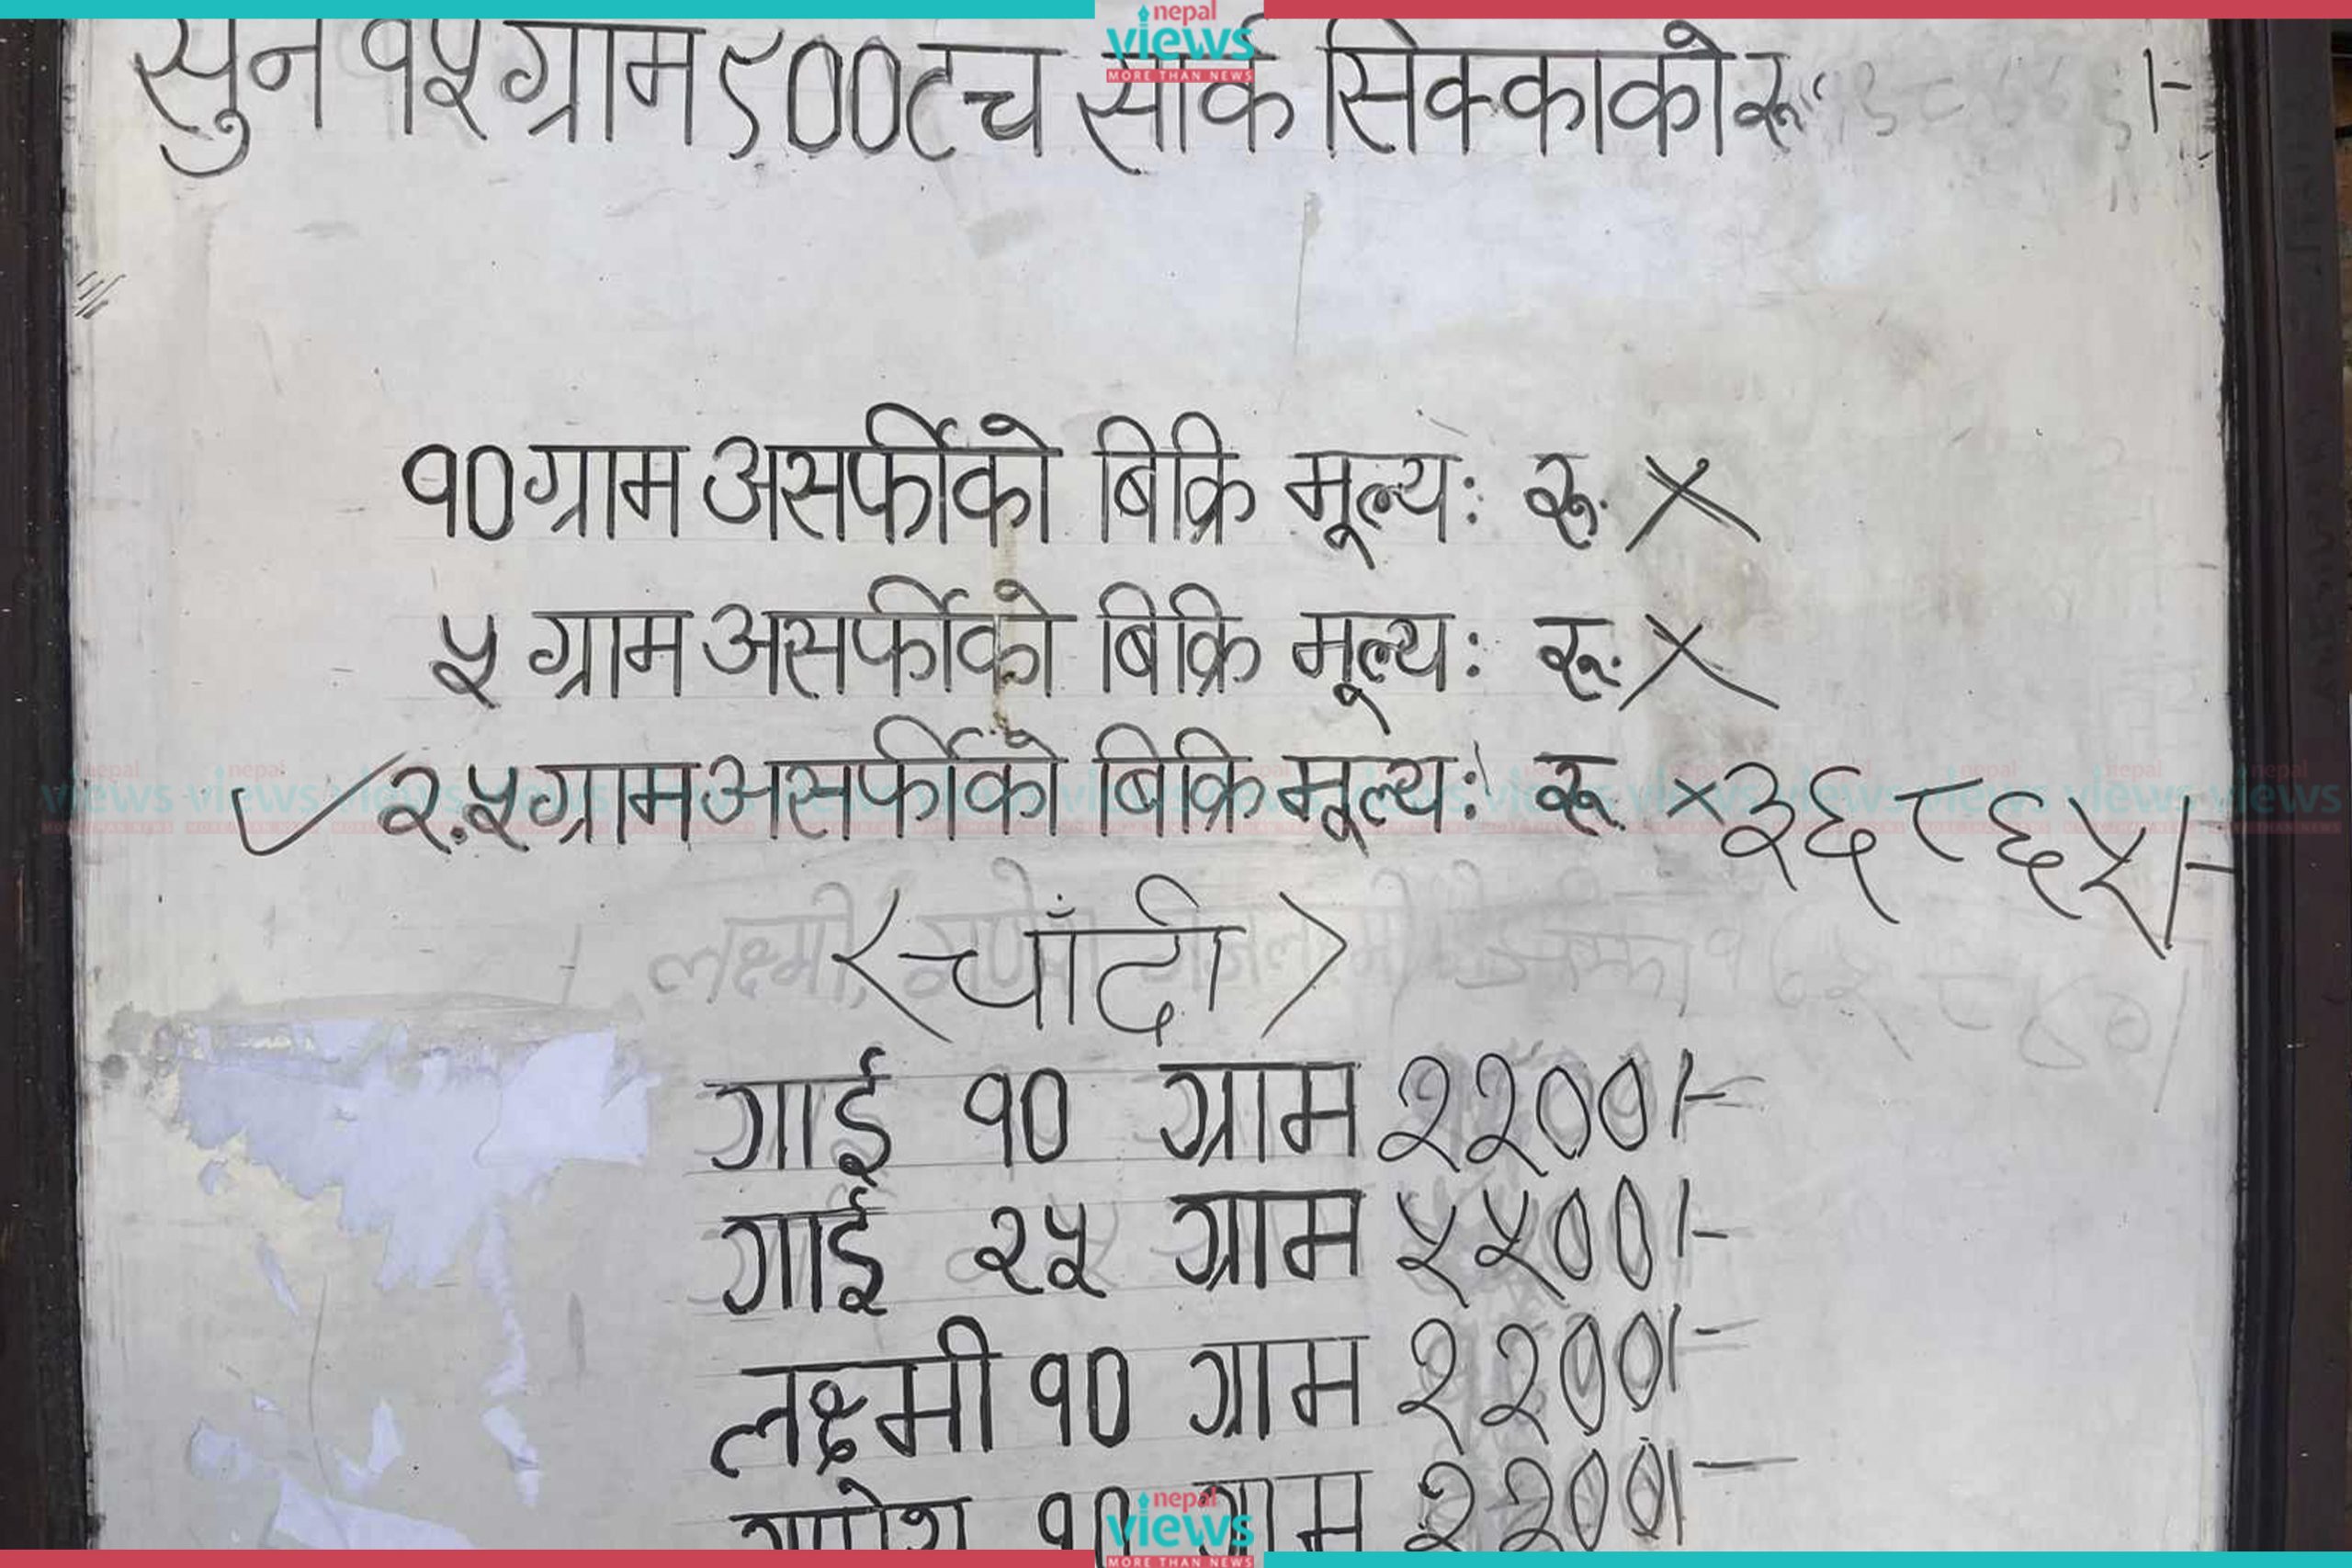 nepal
views
MORE THAN NEWS
सुन १५ ग्राम ९०० टच सार्क सिक्काको रू. /-
१० ग्राम असर्फीको बिक्रि मूल्य: रू. ×
५ ग्राम असर्फीको बिक्रि मूल्य: रू. ×
✓ २.५ ग्राम असर्फीको बिक्रि मूल्य: रू. × ३६८६५/-
<चाँदी>
गाई १० ग्राम २२००/-
गाई २५ ग्राम ५५००/-
लक्ष्मी १० ग्राम २२००/-
गणेश १० ग्राम २२००/-
nepal
views
MORE THAN NEWS